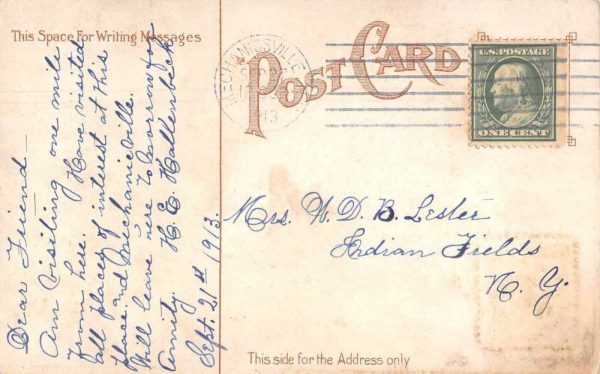 This Space For Writing Messages
POST CARD
MECHANICVILLE
'13
U.S. POSTAGE
ONE CENT
Dear Friend —
Am visiting one mile
from here. Have visited
all places of interest at this
place and Mechanicville.
Will leave here to morrow for
Amity. H. E. Hallenbeck
Sept. 21st 1913.
Mrs. W. D. B. Lester
Indian Fields
N. Y.
This side for the Address only